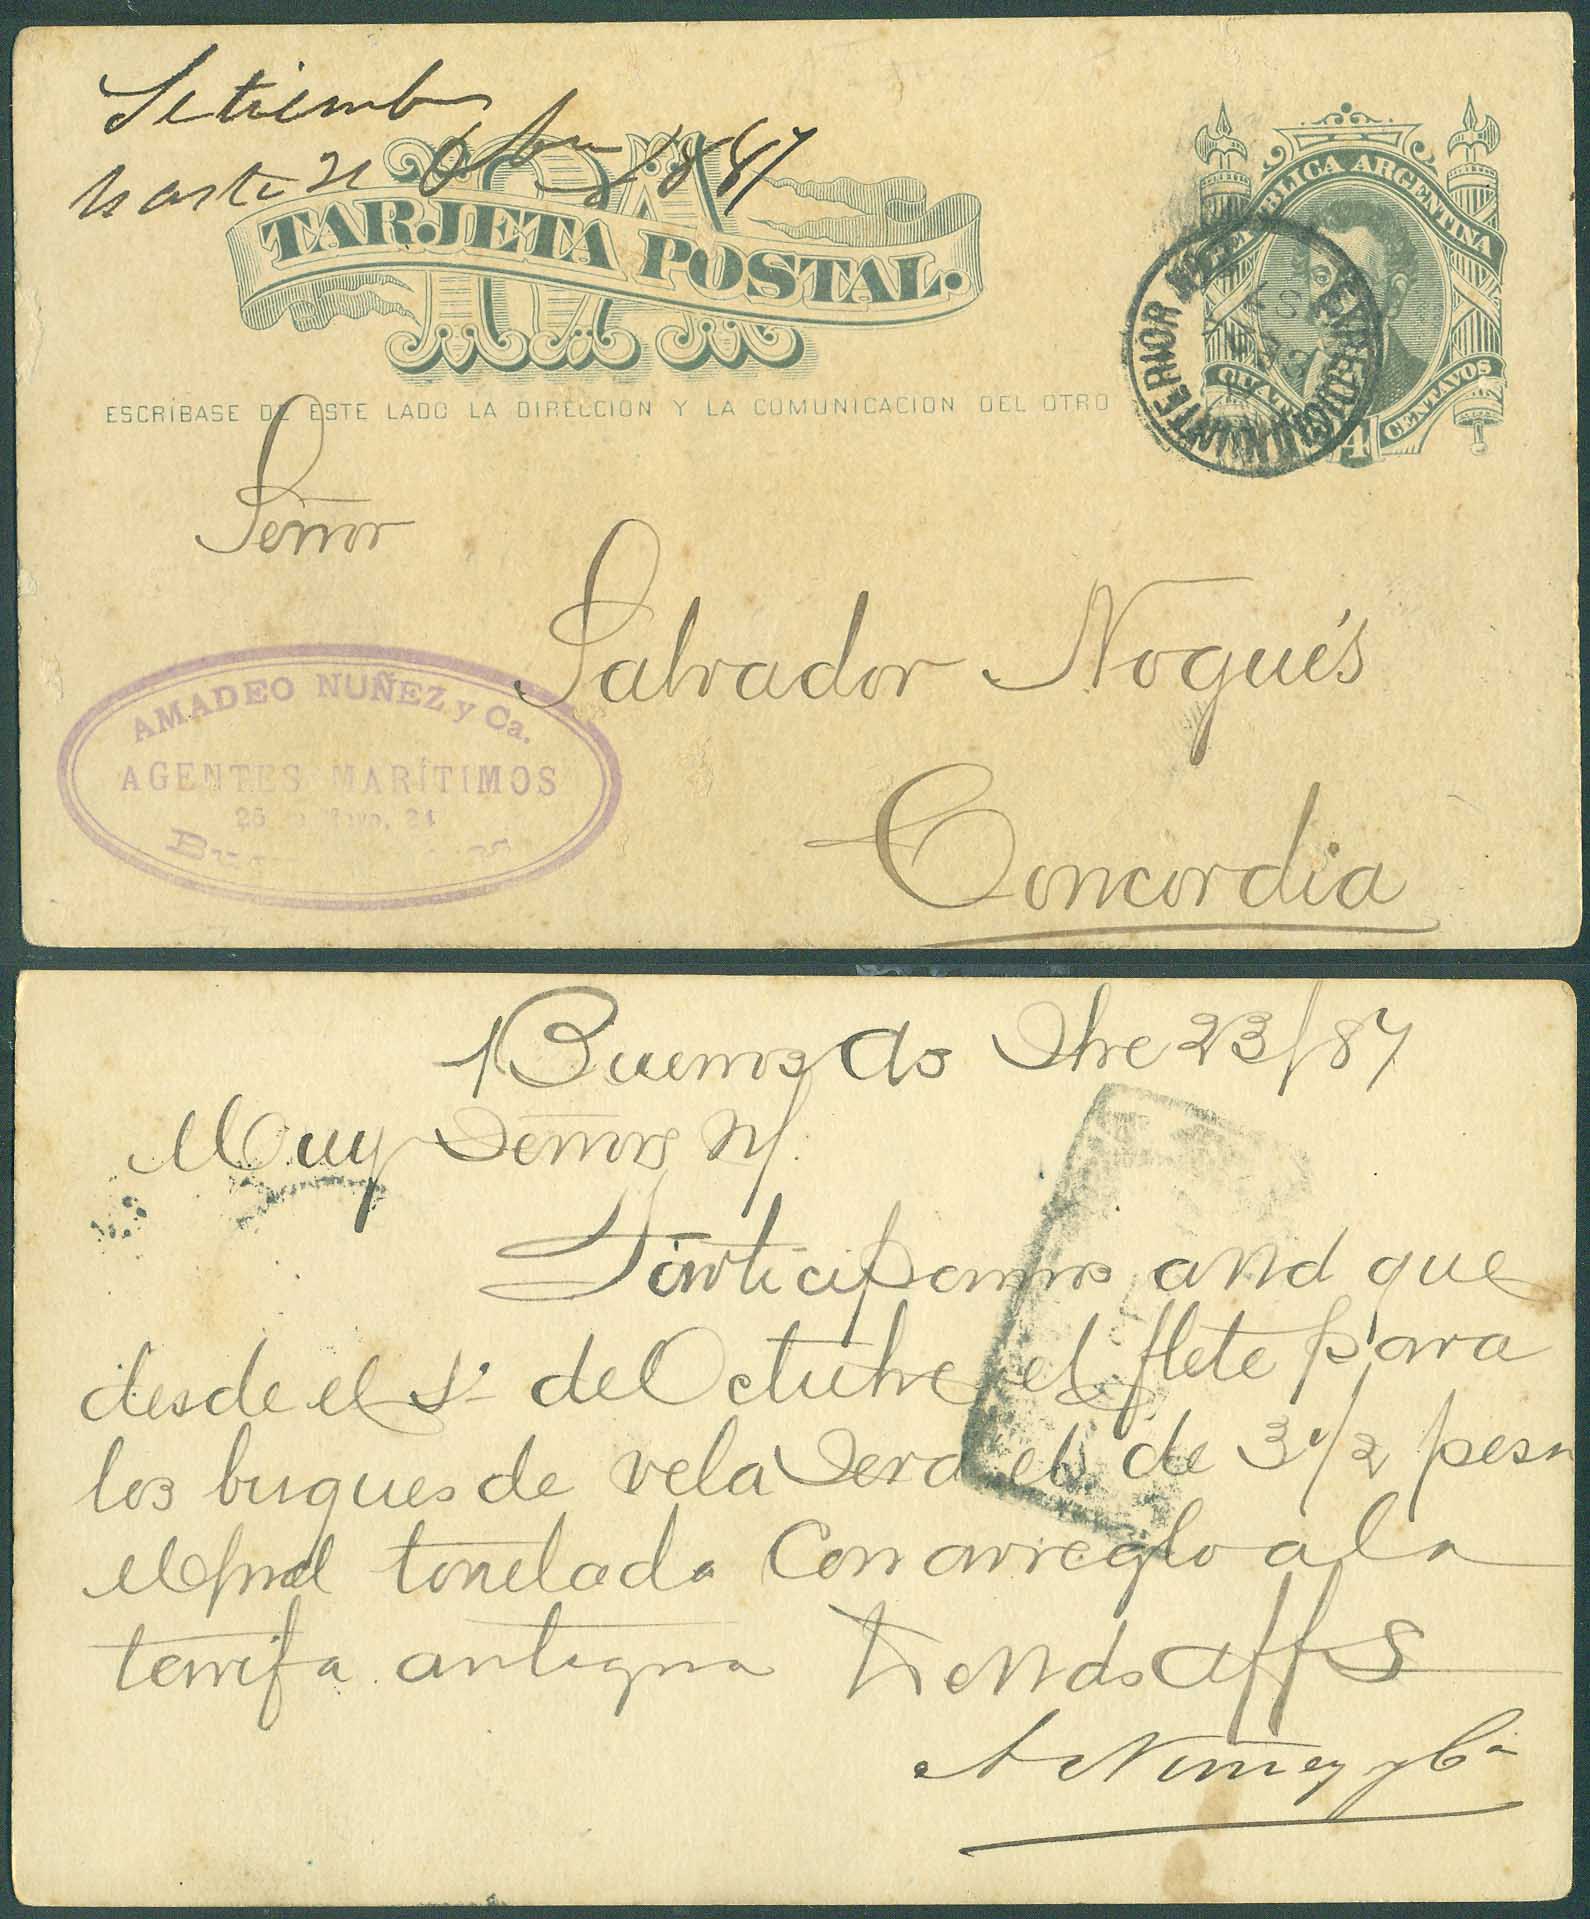 Setiemb
1887
TARJETA POSTAL.
REPÚBLICA ARGENTINA
CENTAVOS
4
INTERIOR
ESCRÍBASE DE ESTE LADO LA DIRECCION Y LA COMUNICACION DEL OTRO
Señor
Salvador Nogués
Concordia
AMADEO NUÑEZ y Ca.
AGENTES MARÍTIMOS
25 de Mayo, 24
Buenos As Sbre 23/87
Muy Señores n/.
Participamos a Vd que
desde el 1º de Octubre el flete para
los buques de vela sera el de 3 1/2 pesos
tonelada con arreglo a la
tarrifa antigua
A Nuñez y Ca